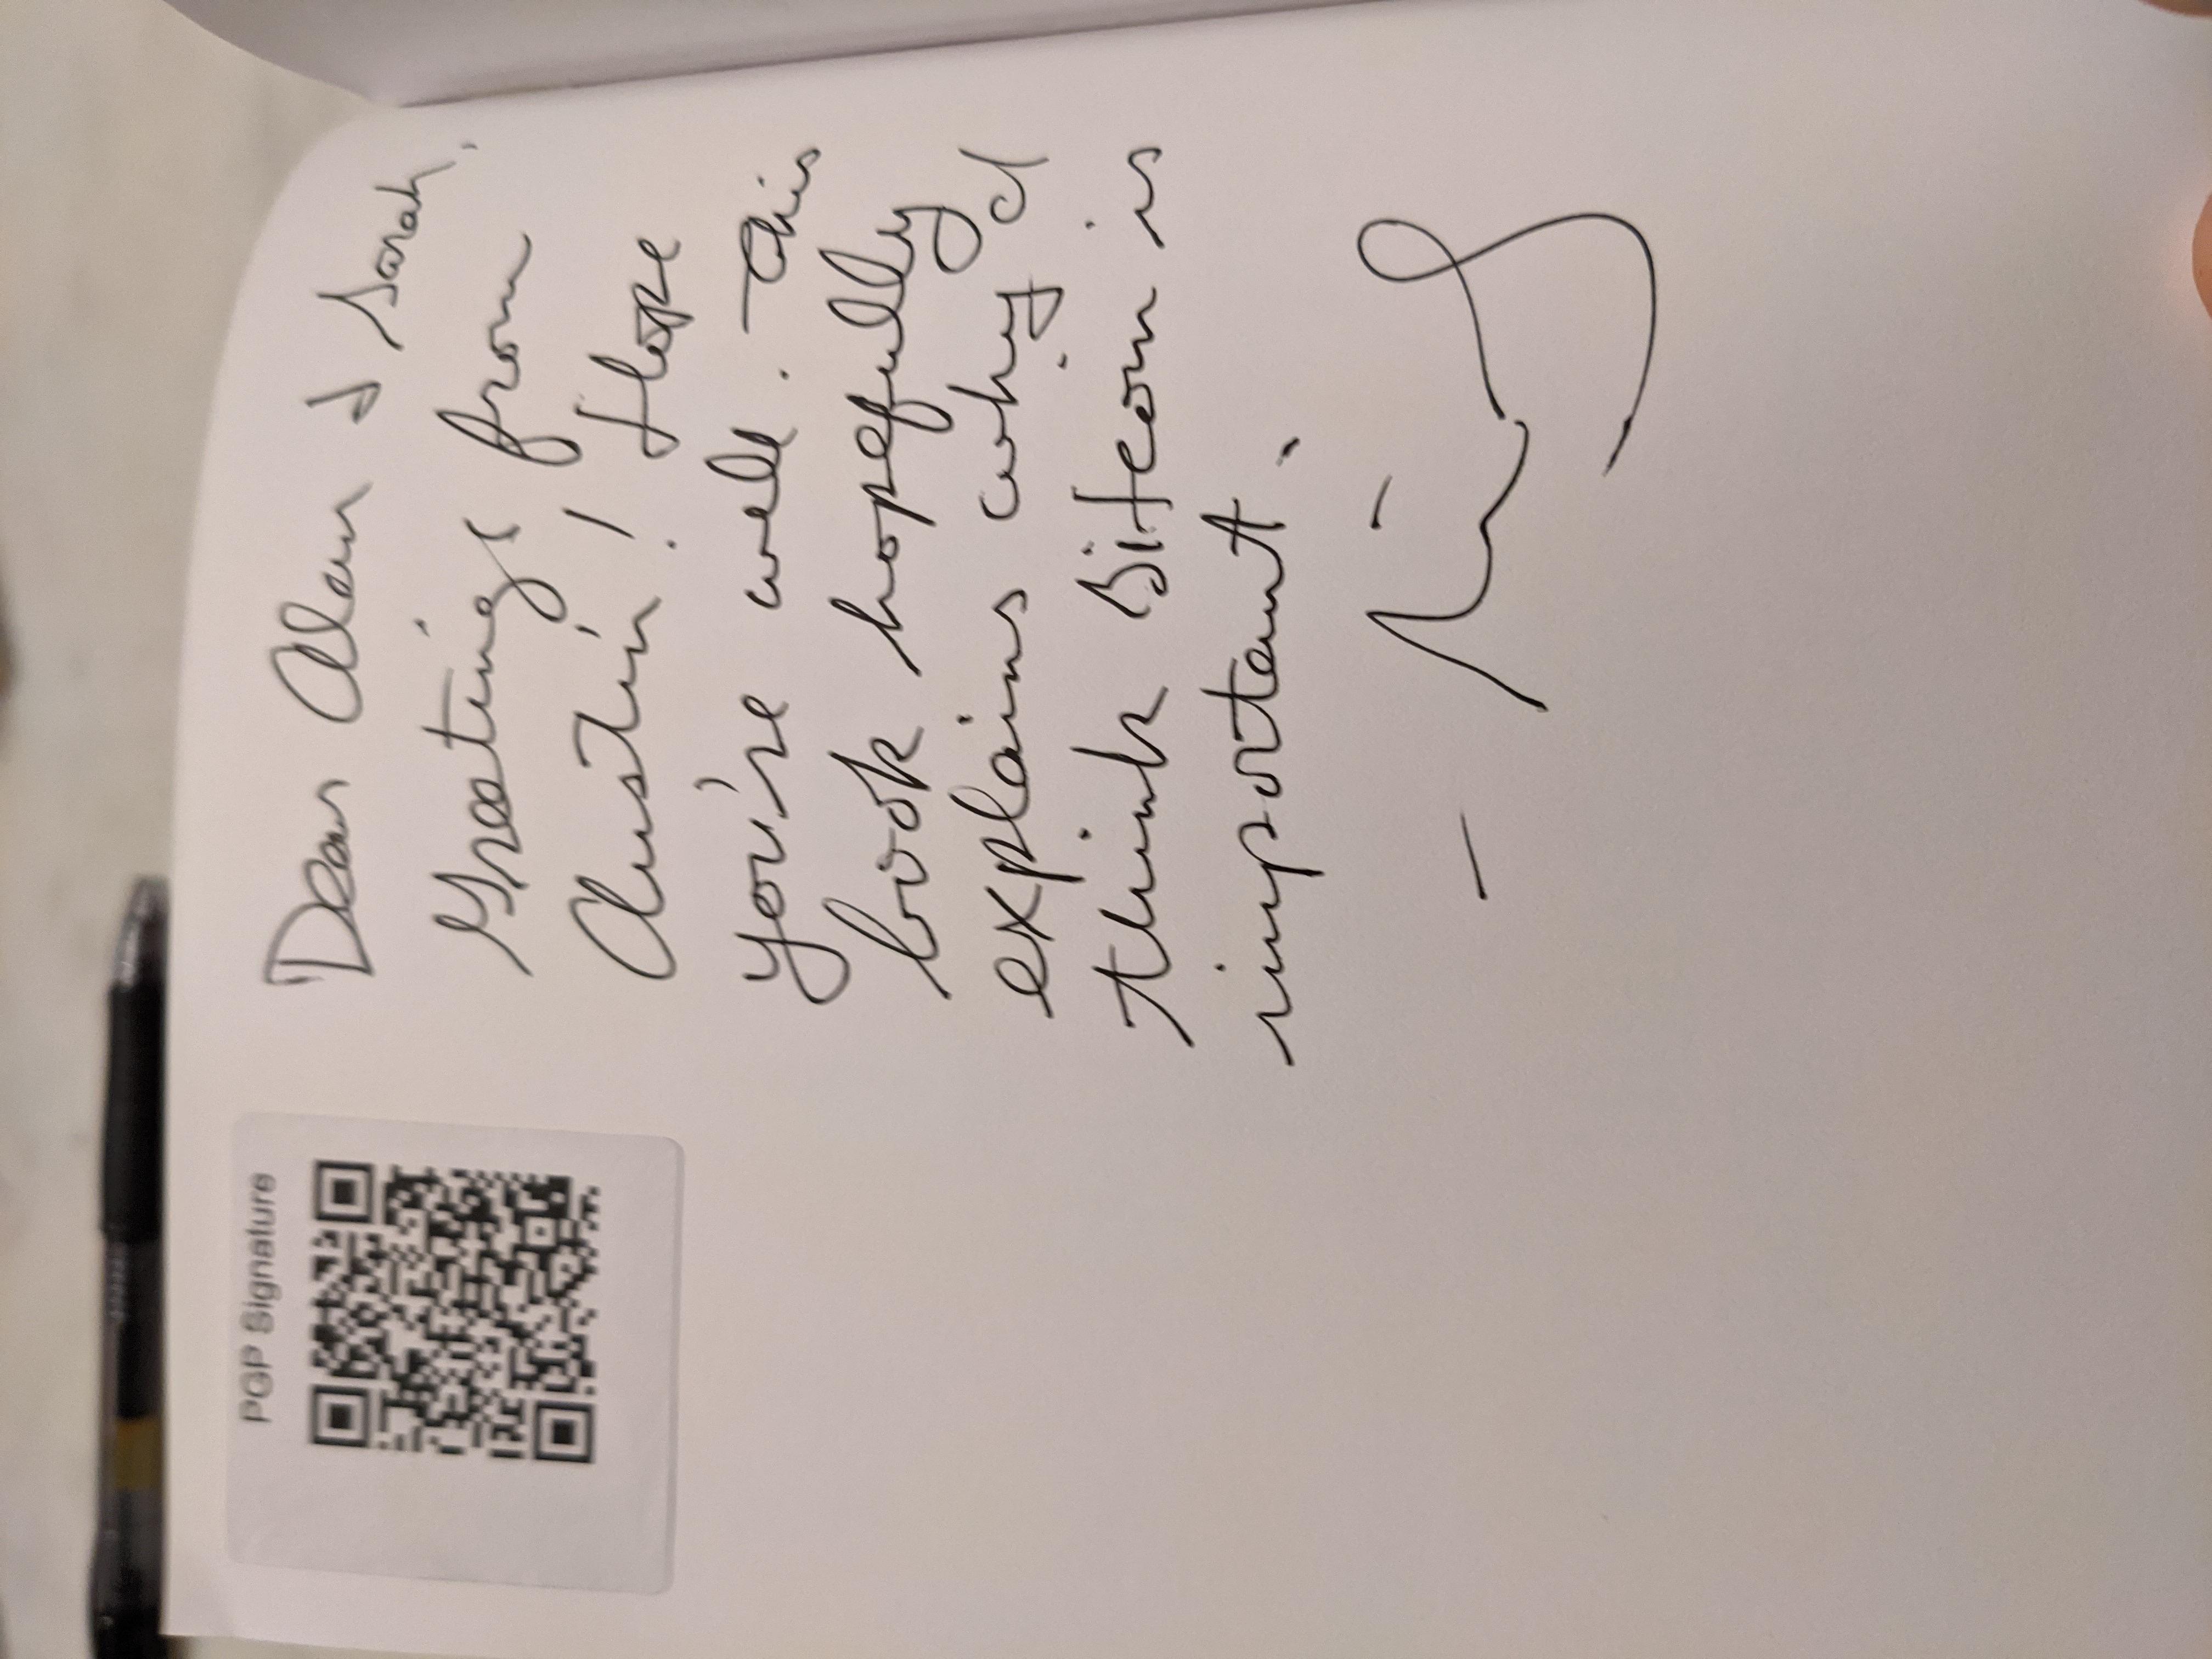 PGP Signature
Dear Alan & Sarah,
Greetings from
Austin! Hope
you're well. This
book hopefully
explains why I
think Bitcoin is
important.